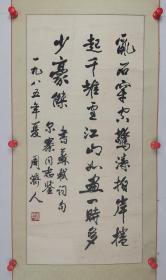 亂石穿空驚濤拍岸捲
起千堆雪江山如畫一時多
少豪傑
書蘇軾詞句
同志鉴
一九八五年夏
周濟人